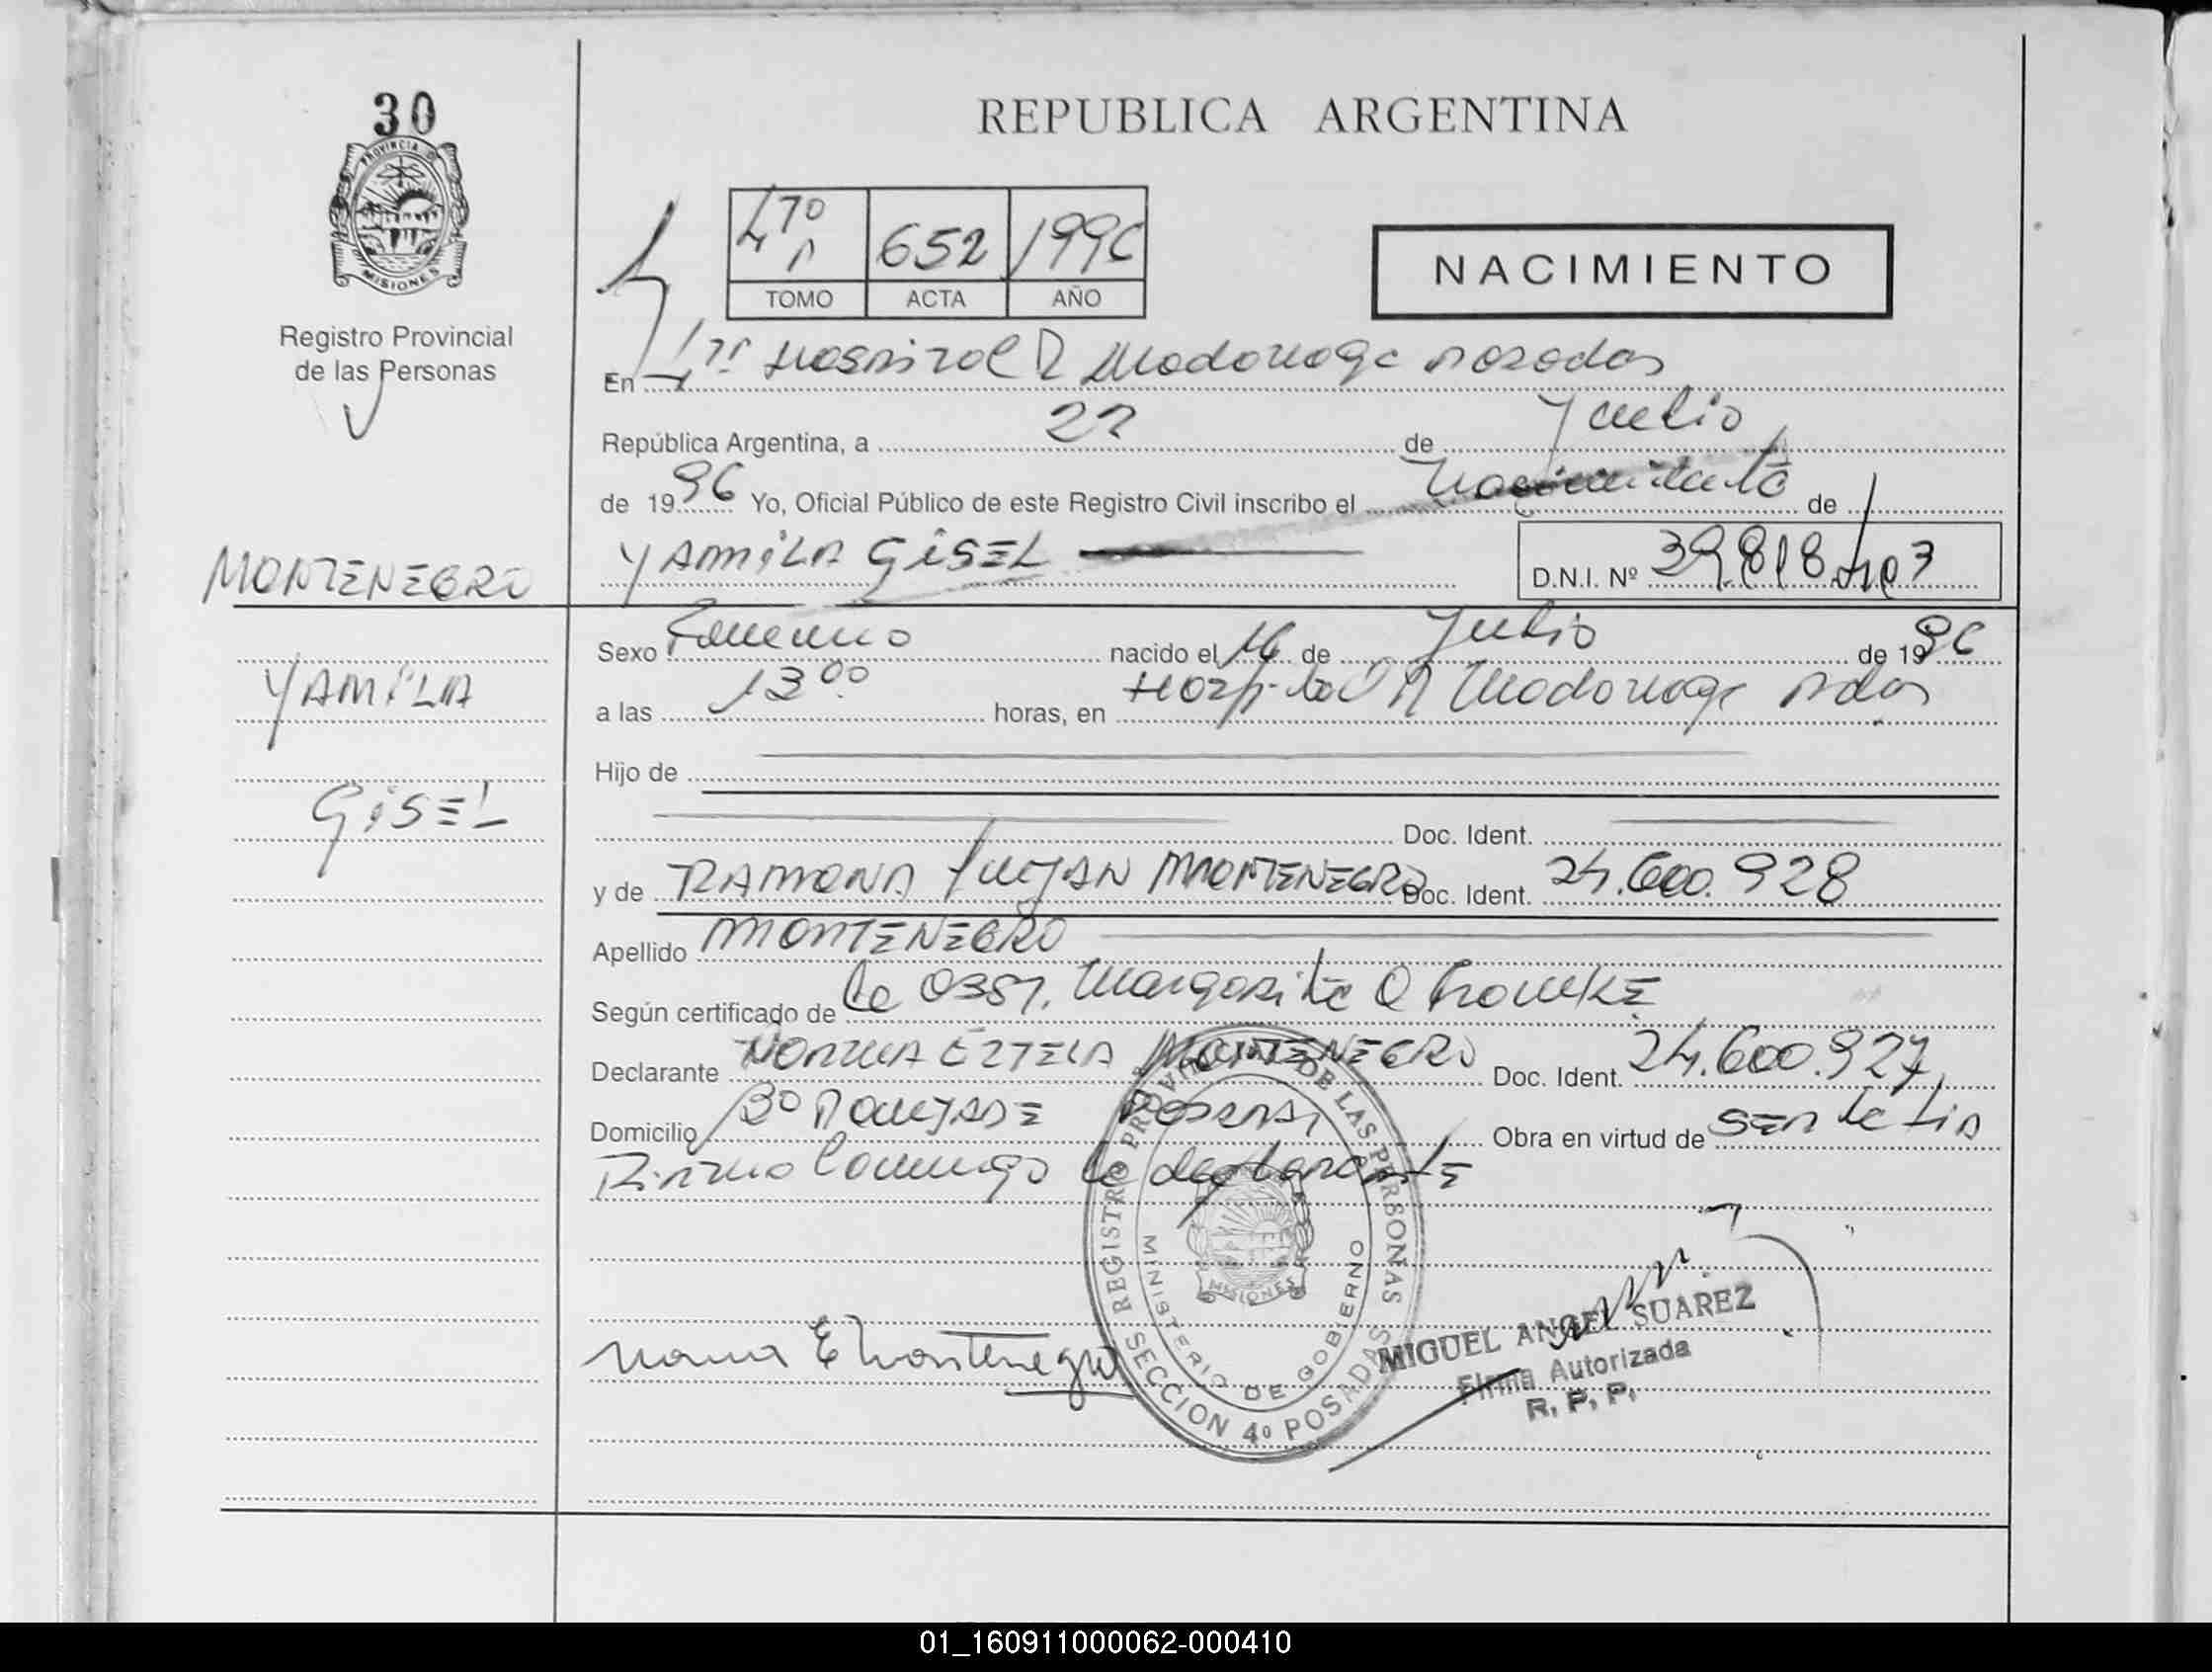 30
PROVINCIA D
MISIONES
Registro Provincial
de las Personas
MONTENEGRO
YAMILA
GISEL
REPUBLICA ARGENTINA
652 1996
TOMO ACTA AÑO
NACIMIENTO
En Hospital R Madariaga Posadas
República Argentina, a 22 de Julio
de 1996 Yo, Oficial Público de este Registro Civil inscribo el Nacimiento de
YAMILA GISEL D.N.I. Nº 39.818.103
Sexo Femenino nacido el 16 de Julio de 1996
a las 13 00 horas, en Hospital R Madariaga Pdas
Hijo de
Doc. Ident.
y de RAMONA LUJAN MONTENEGRO Doc. Ident. 24.600.928
Apellido MONTENEGRO
Según certificado de la Obst. Margarita
Declarante NORMA ESTELA MONTENEGRO Doc. Ident. 24.600.927
Domicilio Bº POSADAS Obra en virtud de ser la tia
Firma Conmigo la declarante
REGISTRO PROVINCIAL DE LAS PERSONAS
MINISTERIO DE GOBIERNO
MISIONES
SECCION 4º POSADAS
Norma E Montenegro
MIGUEL ANGEL SUAREZ
Firma Autorizada
R. P. P.
01_160911000062-000410